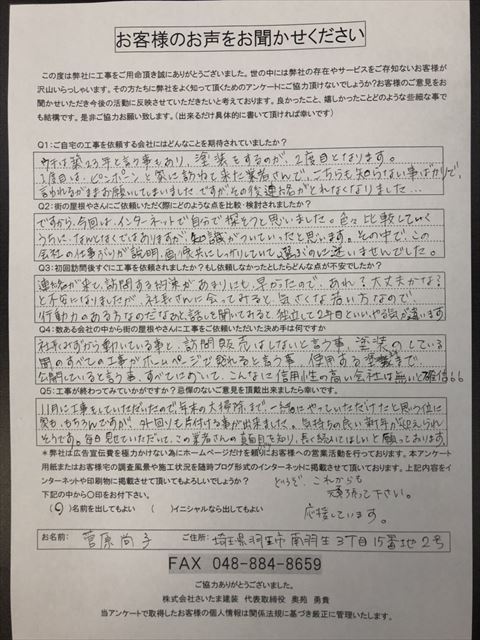 お客様のお声をお聞かせください
この度は弊社に工事をご用命頂き誠にありがとうございました。世の中には弊社の存在やサービスをご存知ないお客様が
沢山いらっしゃいます。その方たちに弊社をよく知って頂くためのアンケートにご協力頂けないでしょうか?お客様のご意見をお
聞かせいただき今後の活動に反映させていただきたいと考えております。良かったこと、嬉しかったことどのような些細な事で
も結構です。是非ご協力お願い致します。(出来るだけ具体的に書いて頂ければ幸いです)
Q1:ご自宅の工事を依頼する会社にはどんなことを期待されていましたか?
ウチは築23年と言う事もあり、塗装をするのが、2度目となります。
1度目は、ピンポーンと家に訪ねて来た業者さんで、こちらも知らない事ばかりで、
言われるがままお願いしてしまいましたですがその後連絡がとれなくなりました…
Q2:街の屋根やさんにご依頼いただく際にどのような点を比較・検討されましたか?
ですから、今回は、インターネットで自分で探そうと思いました。色々比較していく
うちに、なんとなくではありますが、知識がついていったと思います。その中で、この
会社の仕事ぶりが説明、画像共にしっかりしていて選ぶのに迷いませんでした。
Q3:初回訪問後すぐに工事を依頼されましたか?もし依頼しなかったとしたらどんな点が不安でしたか?
連絡が来て、訪問する約束があまりにも早かったので、あれ?大丈夫かな?
と不安になりましたが、社長さんに会ってみると、気さくな若い方なので
行動力のある方なのだなあと話しを聞いてみると独立して2年目といいやる気が違います
Q4:数ある会社の中から街の屋根やさんに工事を依頼いただいた決め手は何ですか
社長みずから動いている事と、訪問販売はしないと言う事、塗装のしている
間のすべての工事がホームページで見れると言う事、使用する塗料まで
公開していると言う事、すべてにおいて、こんなに信用性の高い会社は無いと確信
Q5:工事が終わってみていかがですか?忌憚のないご意見を頂戴出来ましたら幸いです。
11月に工事をしていただいたので、年末の大掃除まで一緒にやっていただけたと思う位に
家も、もちろんですが、外回りも片付ける事が出来ました。気持ちの良い新年が迎えられ
そうです。毎日見ていただいて、この業者さんの真面目さを知り、長く続いてほしいと願っております
*弊社は広告宣伝費を極力かけない為にホームページだけを頼りにお客様への営業活動を行っております。本アンケート
用紙またはお客様宅の調査風景や施工状況を随時ブログ形式のインターネットに掲載させて頂いております。上記内容をイ
ンターネットや印刷物に掲載させて頂いてもよろしいでしょうか?
どうぞ、これからも
下記の中から○印をお付下さい。
頑張って下さい。
(○)名前を出してもよい ( )イニシャルなら出してもよい
応援しています。
お名前: 菅原尚子 ご住所: 埼玉県羽生市南羽生3丁目15番地2号
FAX 048-884-8659
ご協力ありがとうございました。
株式会社さいたま建装 代表取締役 奥苑 勇貴
当アンケートで取得したお客様の個人情報は関係法規に基づき厳正に管理いたします。